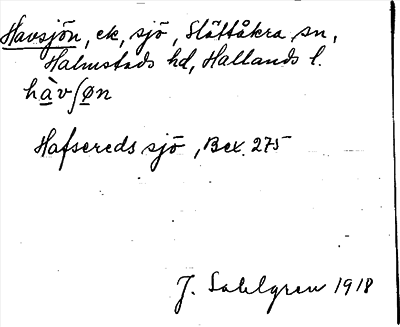 Havsjön, ek, sjö, Slättåkra sn,
Halmstads hd, Hallands l.
hàvʃøn
Hafsereds sjö, Bex. 275
J. Sahlgren 1918